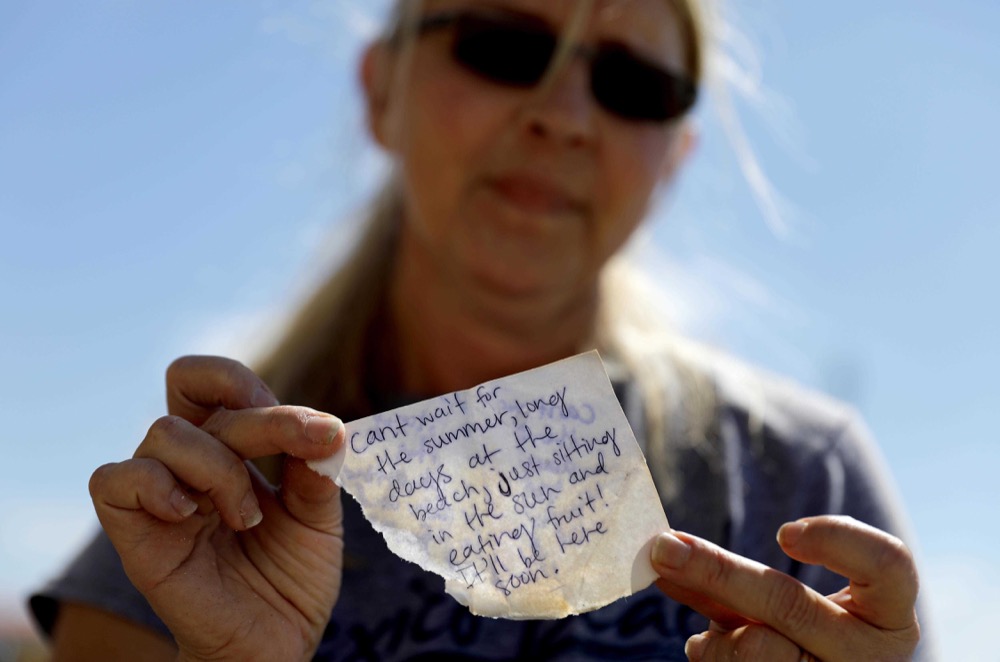 cant wait for
the summer, long
days at the
beach, just sitting
in the sun and
eating fruit!
It'll be here
soon.
exico